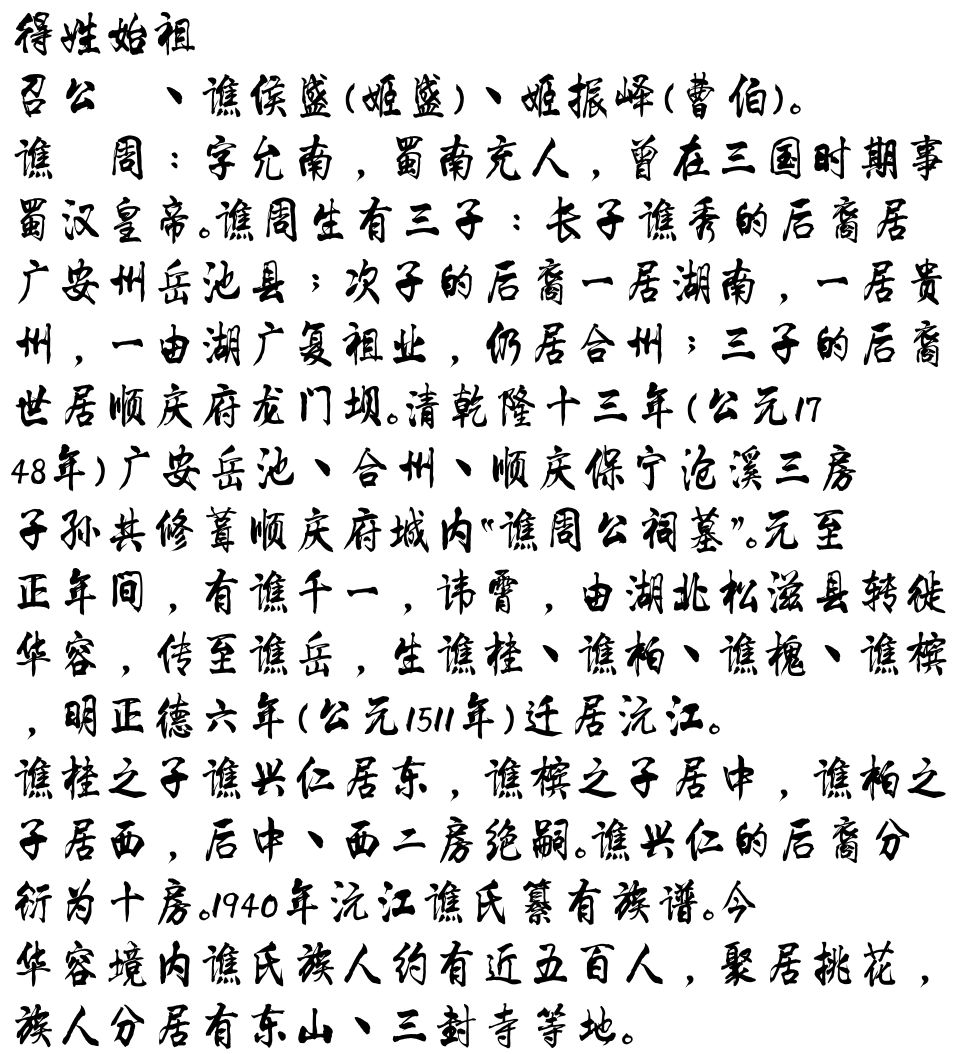 得姓始祖
召公 、谯侯盛(姬盛)、姬振峄(曹伯)。
谯 周：字允南，蜀南充人，曾在三国时期事
蜀汉皇帝。谯周生有三子：长子谯秀的后裔居
广安州岳池县；次子的后裔一居湖南，一居贵
州，一由湖广复祖业，仍居合州；三子的后裔
世居顺庆府龙门坝。清乾隆十三年(公元17
48年)广安岳池、合州、顺庆保宁沧溪三房
子孙共修葺顺庆府城内“谯周公祠墓”。元至
正年间，有谯千一，讳霄，由湖北松滋县转徙
华容，传至谯岳，生谯桂、谯柏、谯槐、谯槟
，明正德六年(公元1511年)迁居沅江。
谯桂之子谯兴仁居东，谯槟之子居中，谯柏之
子居西，后中、西二房绝嗣。谯兴仁的后裔分
衍为十房。1940年沅江谯氏纂有族谱。今
华容境内谯氏族人约有近五百人，聚居挑花，
族人分居有东山、三封寺等地。